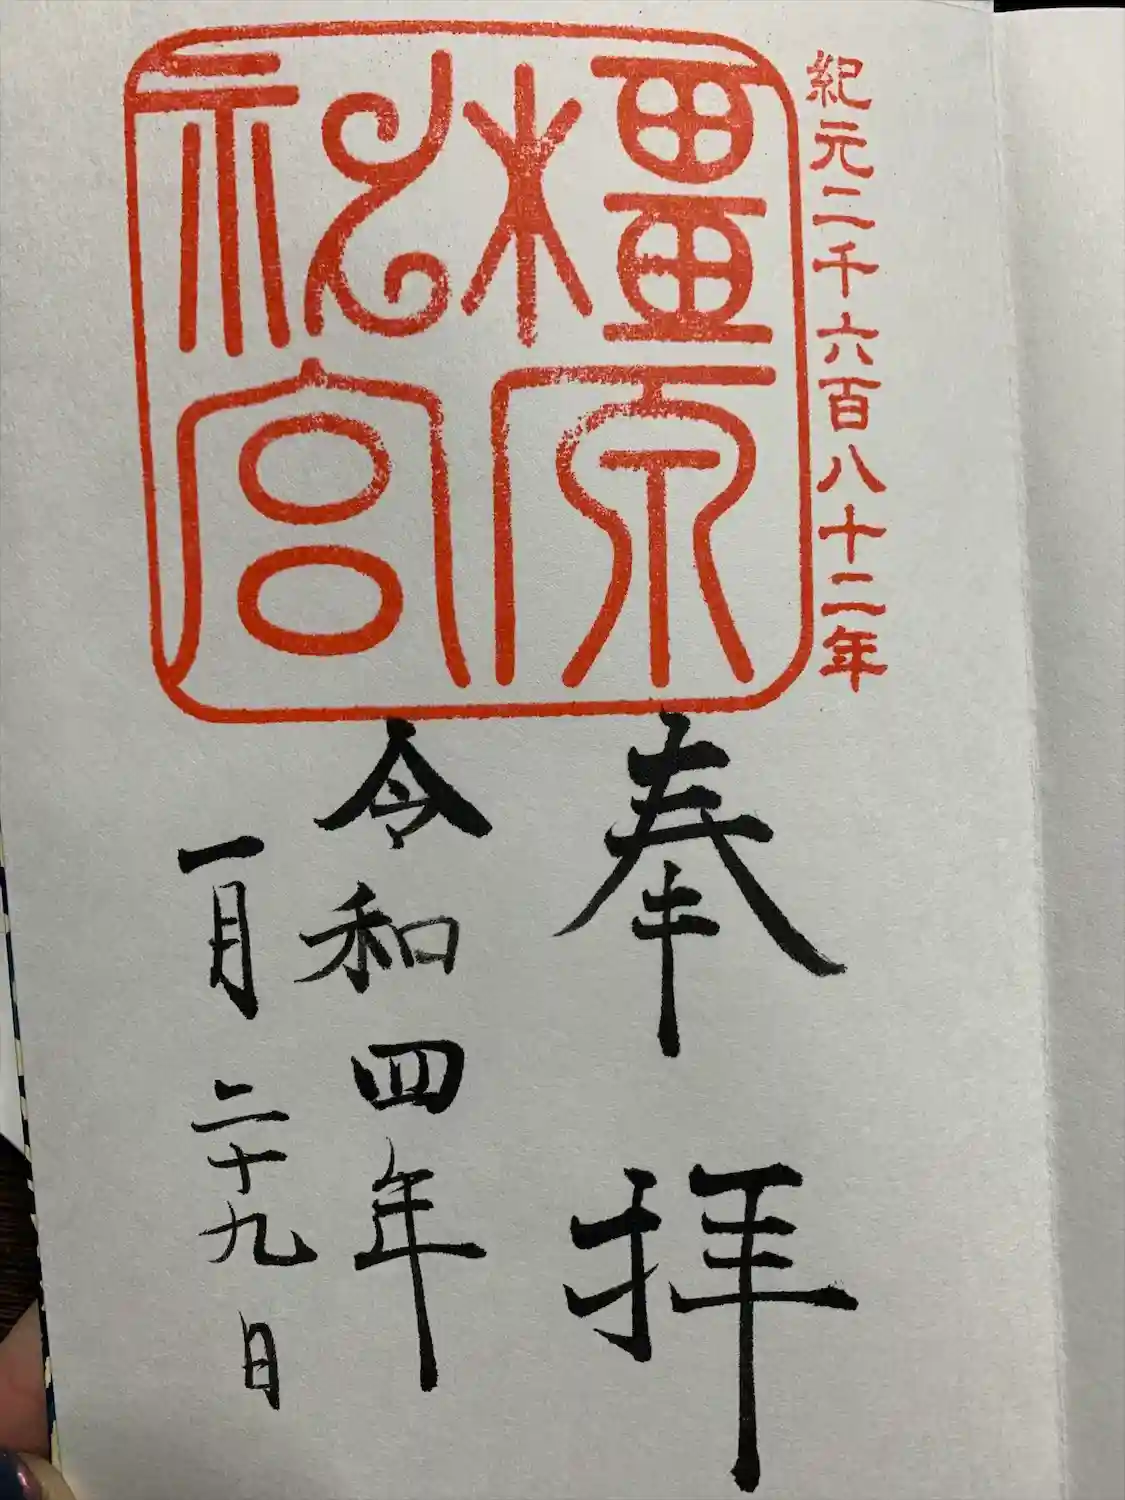 紀元二千六百八十二年
橿原神宮
奉拝
令和四年
一月二十九日